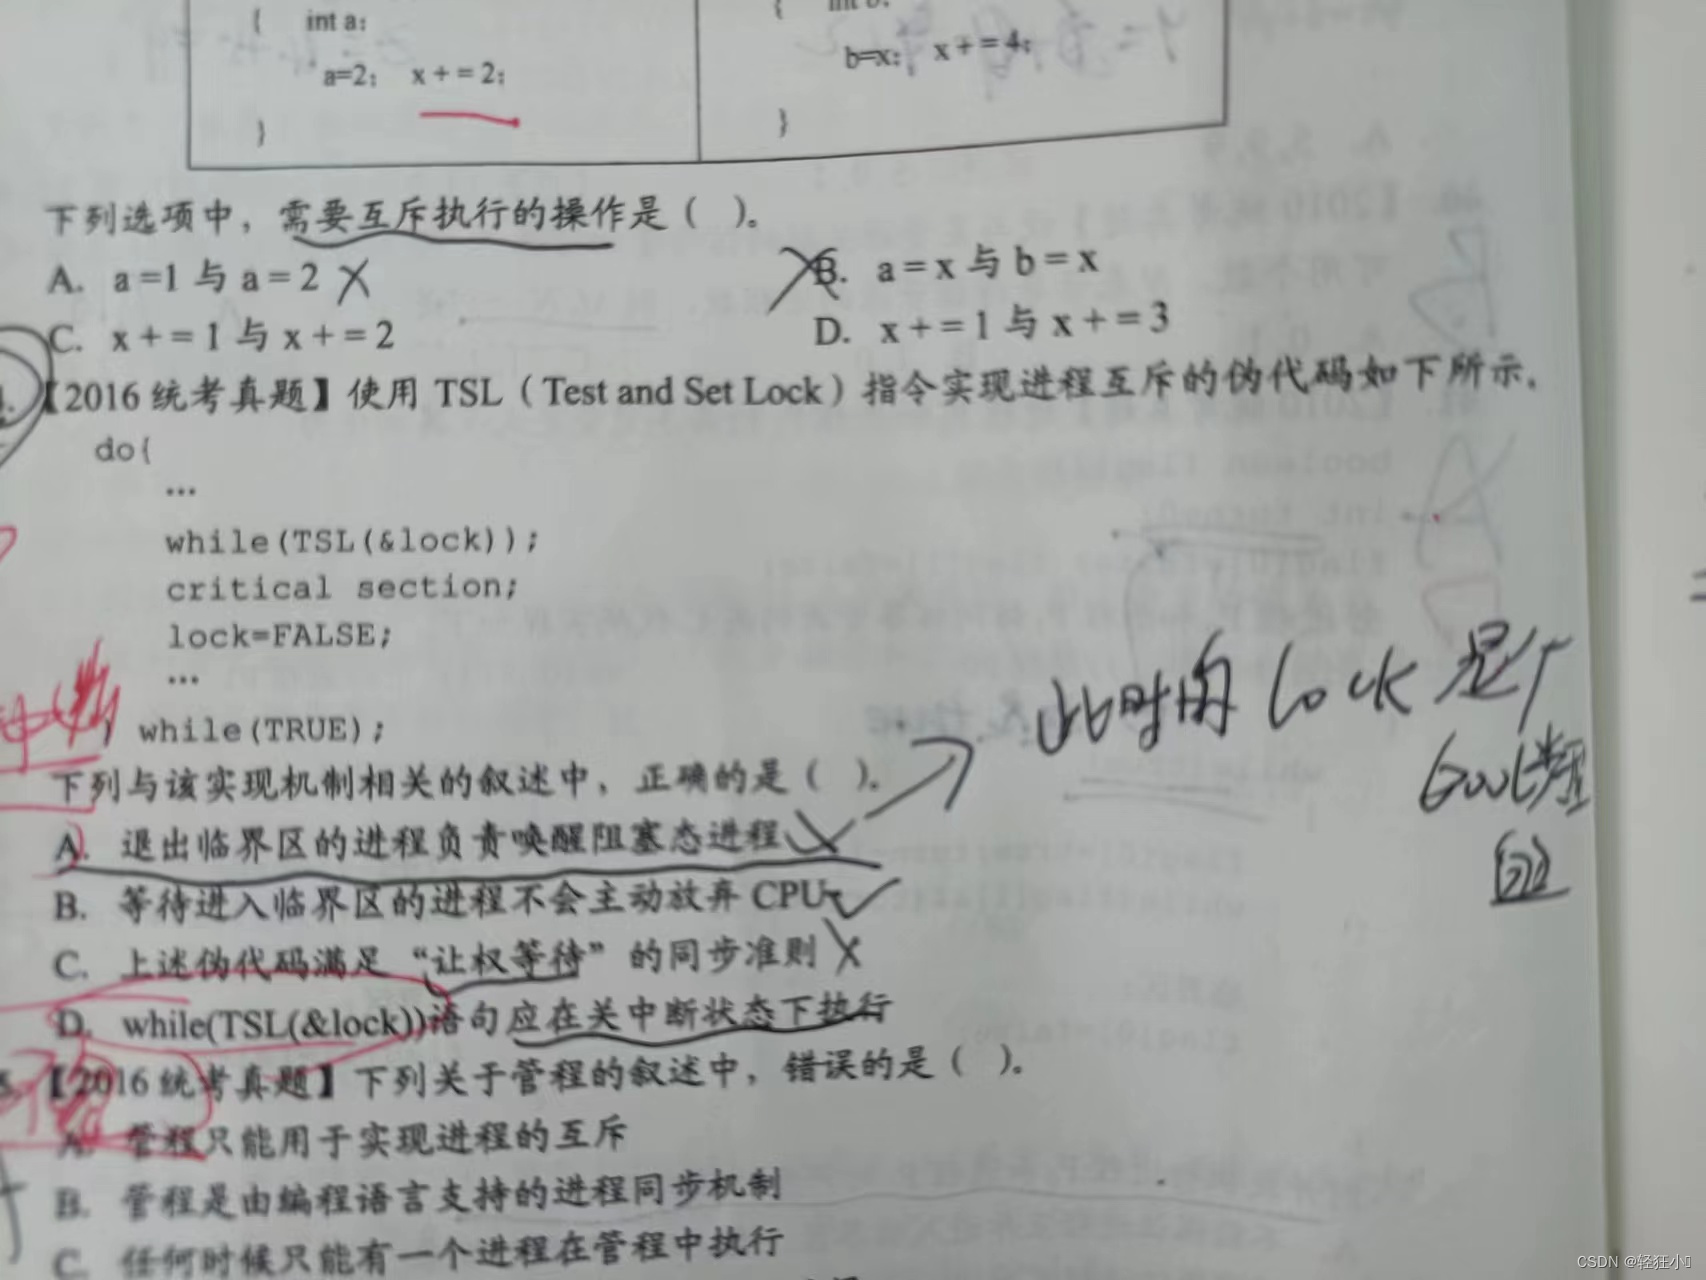 { int a;
a=2; x+=2;
}
{ int b;
b=x; x+=4;
}
下列选项中，需要互斥执行的操作是（ ）。
A. a=1 与 a=2
B. a=x 与 b=x
C. x+=1 与 x+=2
D. x+=1 与 x+=3
【2016 统考真题】使用 TSL（Test and Set Lock）指令实现进程互斥的伪代码如下所示。
do{
…
while(TSL(&lock));
critical section;
lock=FALSE;
…
} while(TRUE);
此时的 lock 是个
bool类型
下列与该实现机制相关的叙述中，正确的是（ ）。
A. 退出临界区的进程负责唤醒阻塞态进程
B. 等待进入临界区的进程不会主动放弃 CPU
C. 上述伪代码满足“让权等待”的同步准则
D. while(TSL(&lock))语句应在关中断状态下执行
【2016 统考真题】下列关于管程的叙述中，错误的是（ ）。
A. 管程只能用于实现进程的互斥
B. 管程是由编程语言支持的进程同步机制
C. 任何时候只能有一个进程在管程中执行
CSDN @轻狂小